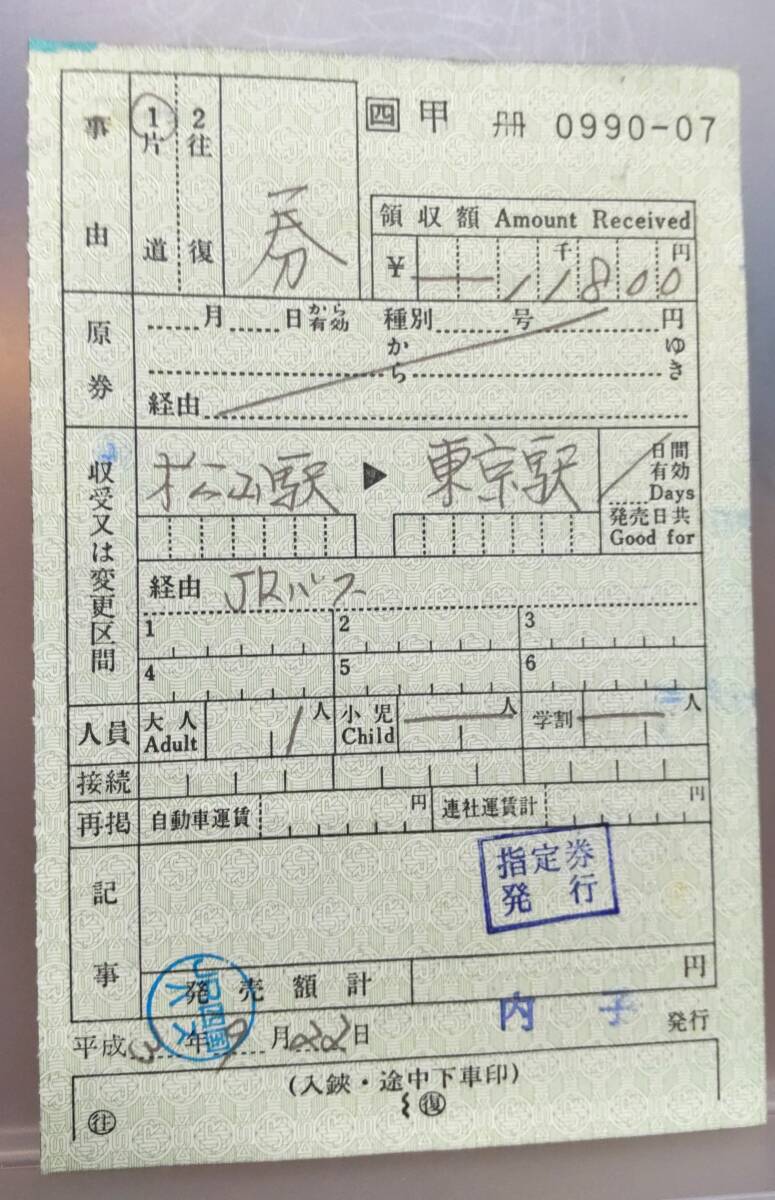 事由
1片道
2往復
券
四 甲 冊 0990-07
領収額 Amount Received
¥ 千 円
11800
原券
月 日から有効 種別 号 円
から ゆき
経由
収受又は変更区間
松山駅 ▶ 東京駅
日間有効
Days
発売日共
Good for
経由 JRバス
1 2 3
4 5 6
人員 大人 Adult 1人 小児 Child 人 学割 人
接続
再掲 自動車運賃 円 連社運賃計 円
記事
指定券
発行
発売額計 円
JR四国
バス
平成3年9月22日 内子 発行
(入鋏・途中下車印)
往 復